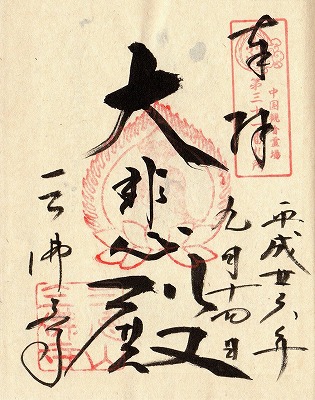 奉拝
中国観音霊場
第三十
平成廿六年
九月十四日
大悲心殿
三佛寺